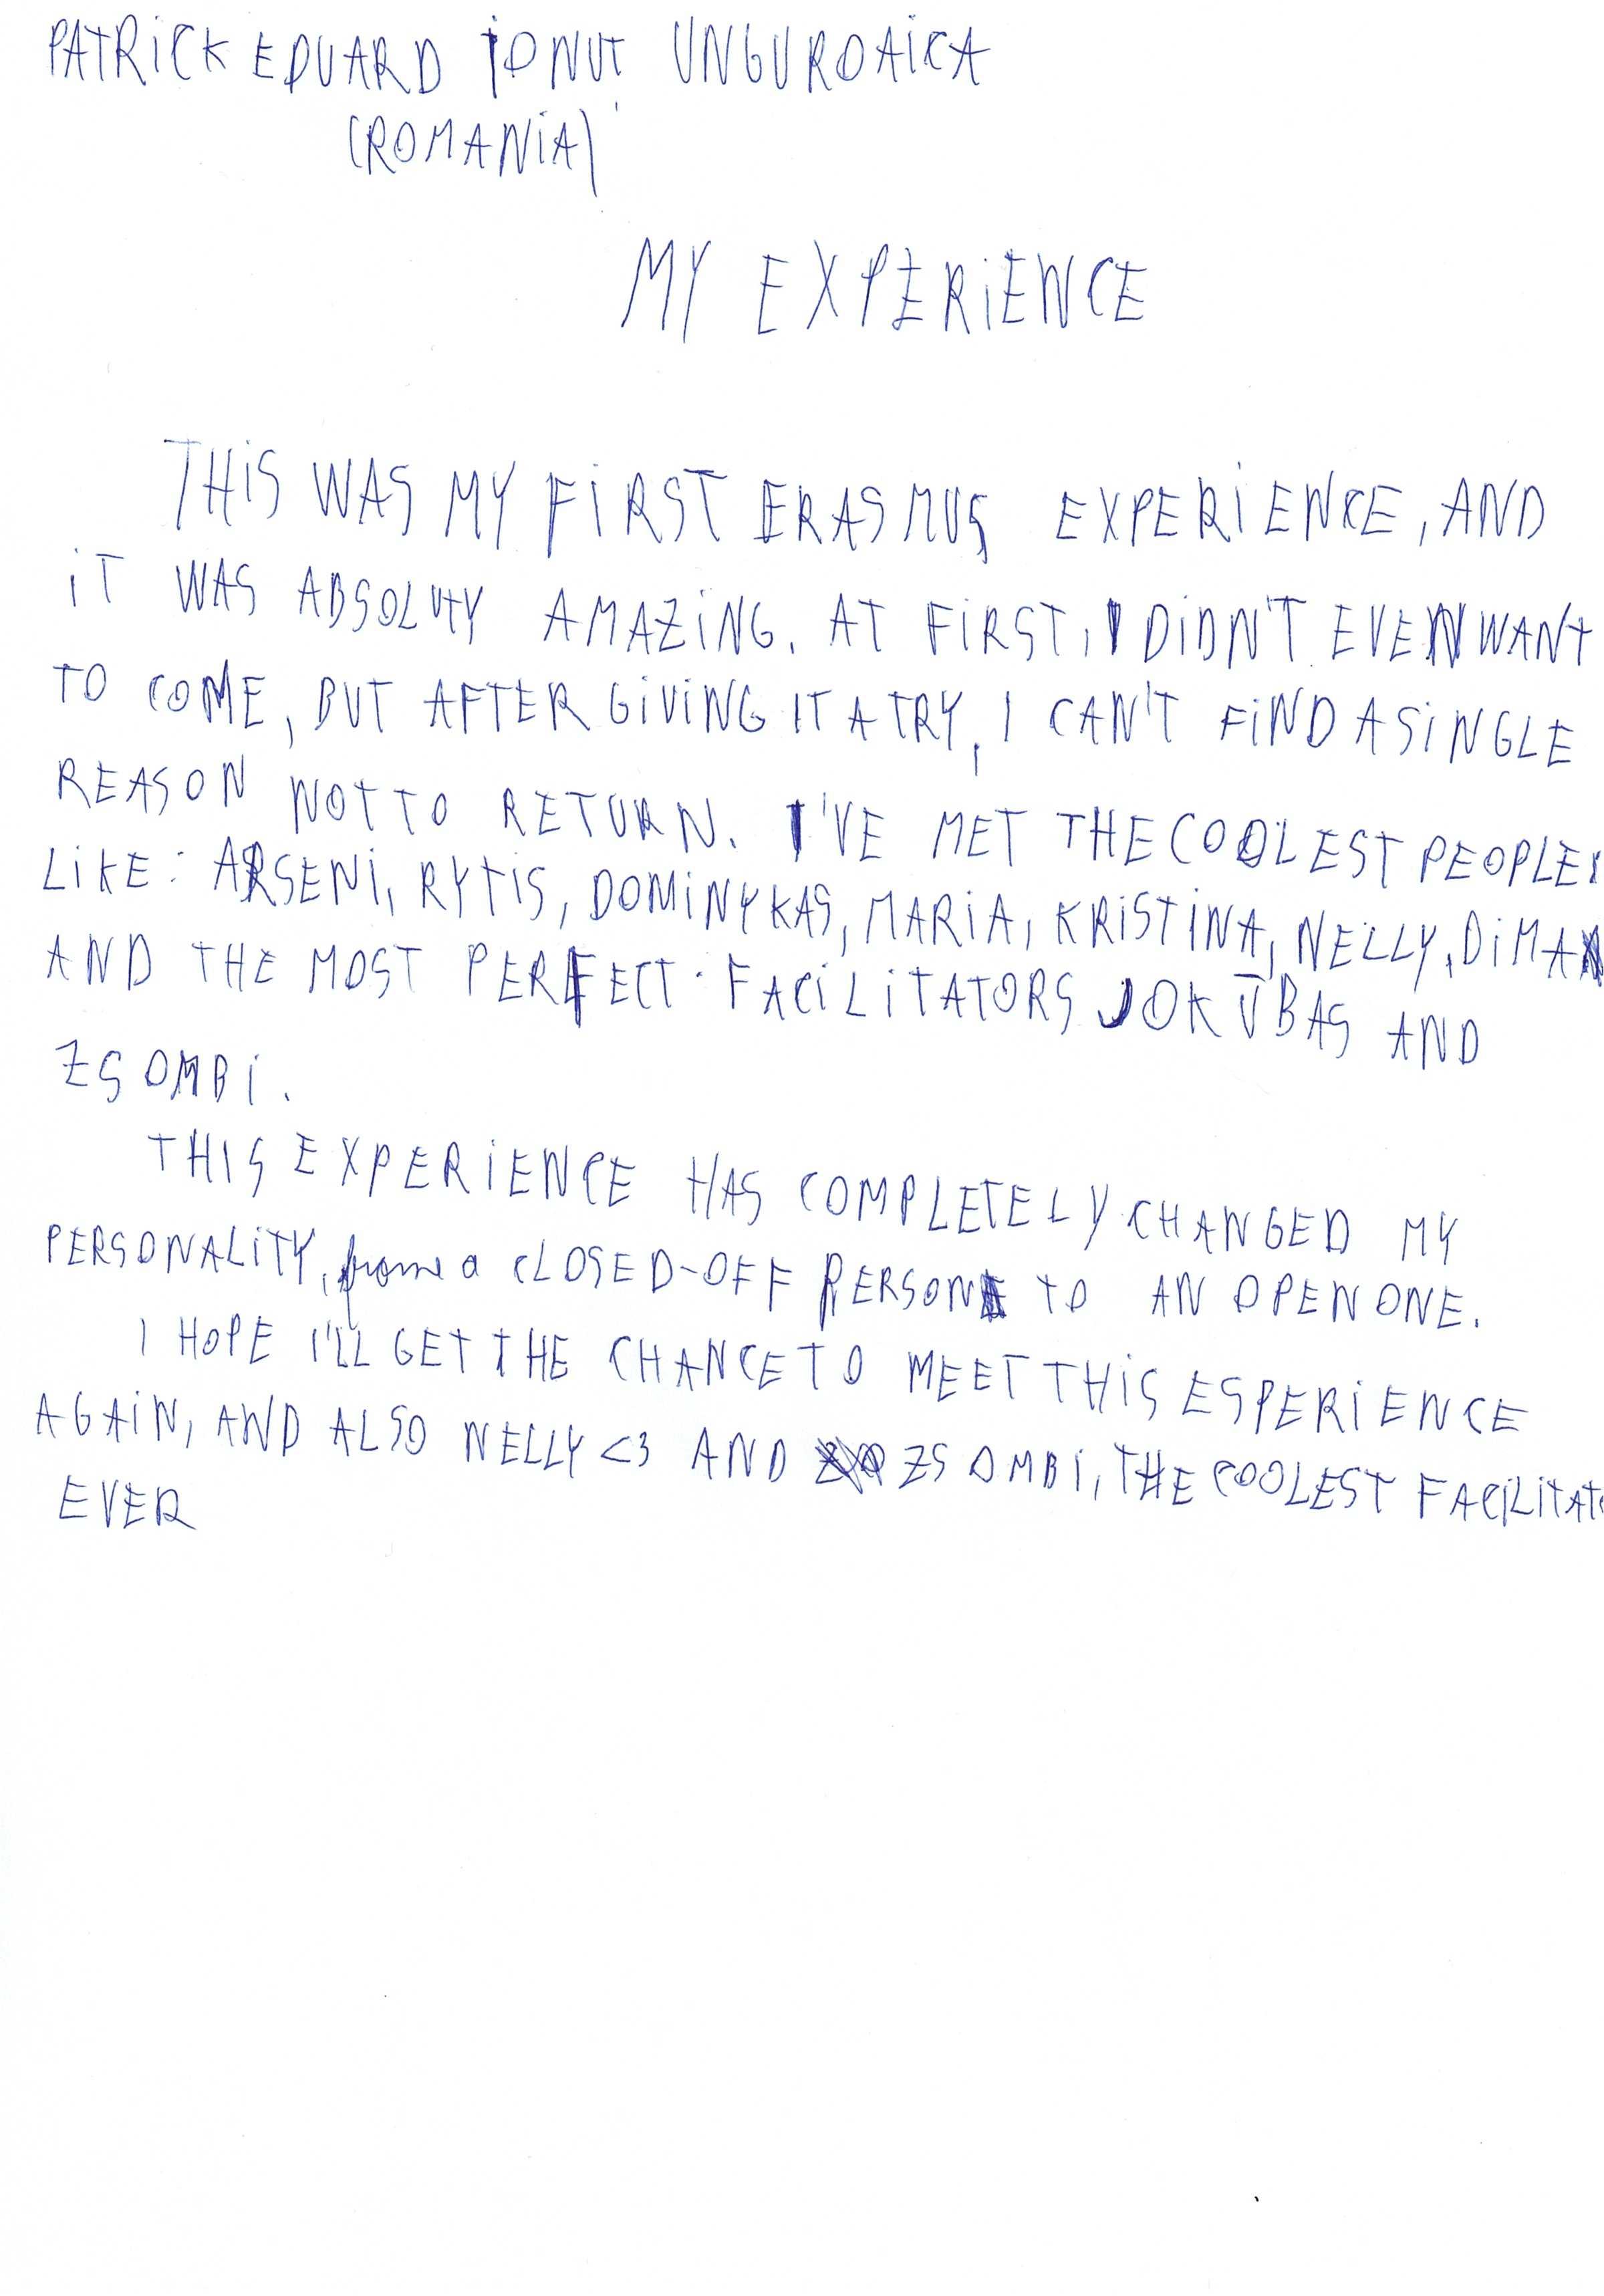 PATRICK EDUARD IONUT UNGUROAICA
(ROMANIA)
MY EXPERIENCE
THIS WAS MY FIRST ERASMUS EXPERIENCE, AND
IT WAS ABSOLUTY AMAZING. AT FIRST, I DIDN'T EVEN WANT
TO COME, BUT AFTER GIVING IT A TRY, I CAN'T FIND A SINGLE
REASON NOT TO RETURN. I'VE MET THE COOLEST PEOPLE
LIKE: ARSENI, RYTIS, DOMINYKAS, MARIA, KRISTINA, NELLY, DIMA
AND THE MOST PERFECT FACILITATORS JOKŪBAS AND
ZSOMBI.
THIS EXPERIENCE HAS COMPLETELY CHANGED MY
PERSONALITY, from a CLOSED-OFF PERSON TO AN OPEN ONE.
I HOPE I'LL GET THE CHANCE TO MEET THIS ESPERIENCE
AGAIN, AND ALSO NELLY <3 AND ZSOMBI, THE COOLEST FACILITAT
EVER